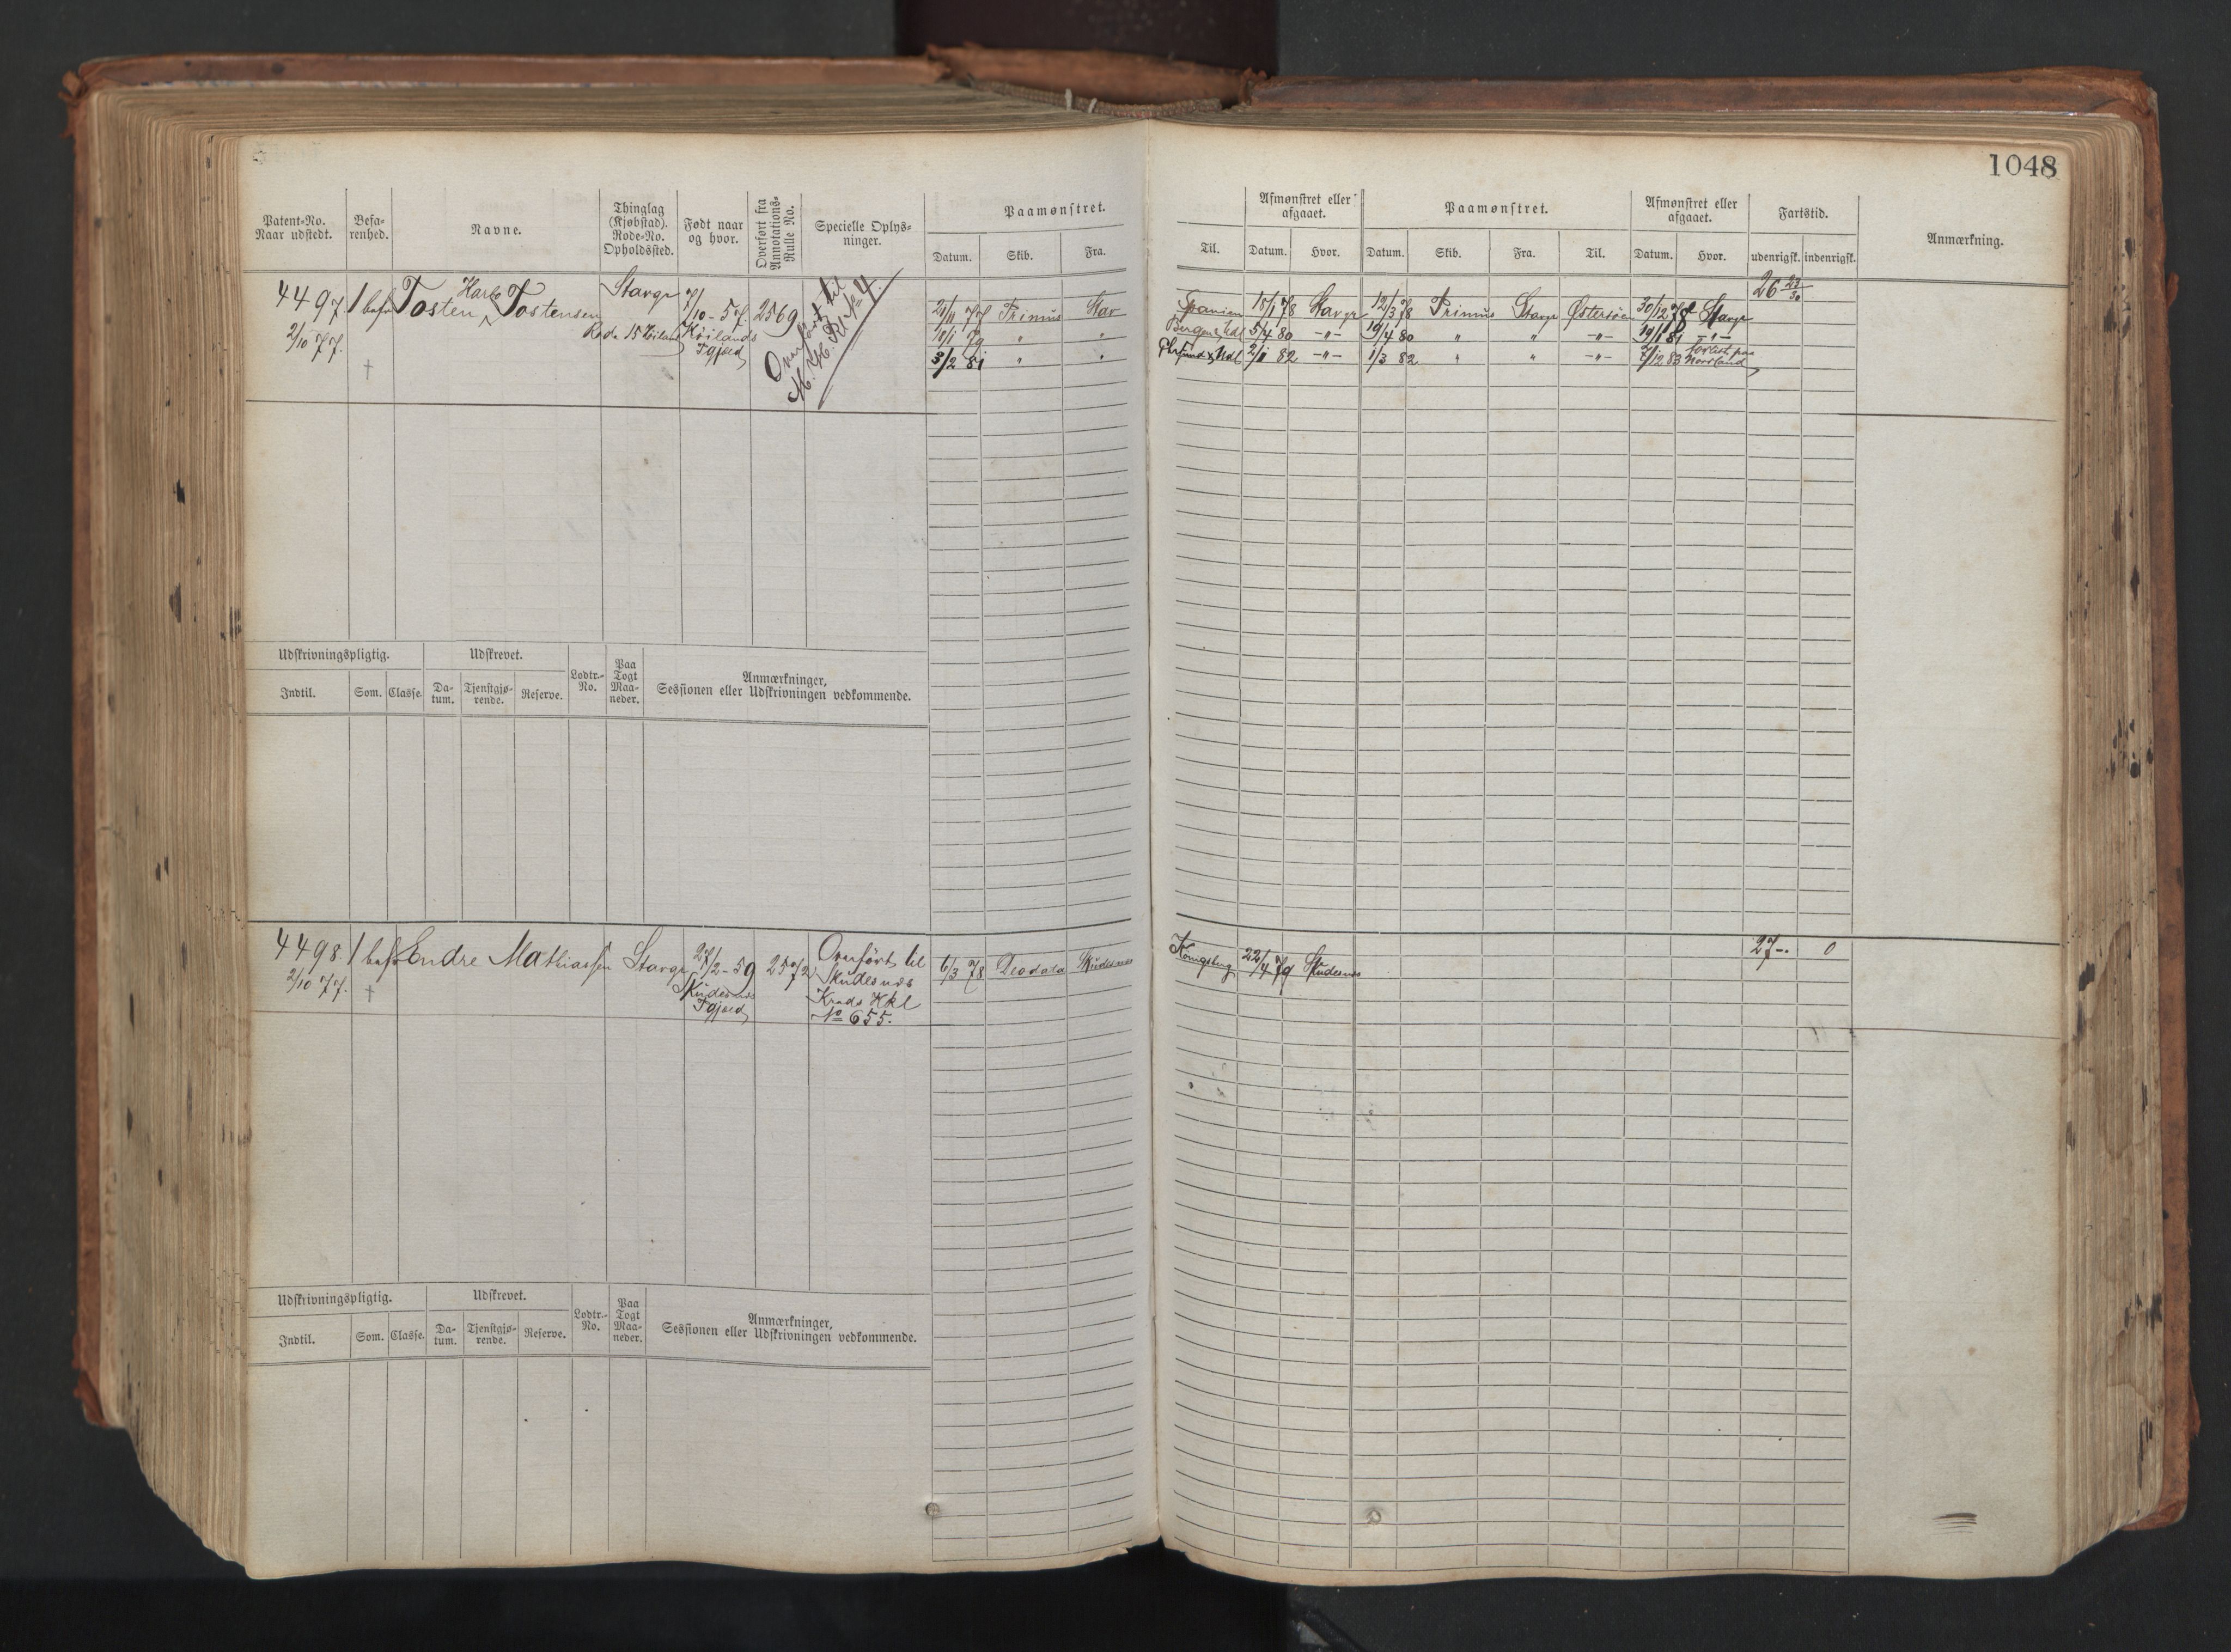 1048
Patent-No. Naar udstedt.
Befarenhed.
Navne.
Thinglag (Kjøbstad). Rode-No. Opholdssted.
Født naar og hvor.
Overført fra Annotations-Rulle No.
Specielle Oplysninger.
Paamønstret.
Datum. Skib. Fra.
Til.
Afmønstret eller afgaaet.
Datum. Hvor.
Paamønstret.
Datum. Skib. Fra. Til.
Afmønstret eller afgaaet.
Datum. Hvor.
Fartstid.
udenrigsk. indenrigsk.
Anmærkning.
4497. 1 bef Tosten Tostensen Stavgr 7/10-57. 2569
2/10 77. Rode 15
Tgjæld
Overført til
21/11 77 Primus Stav Spanien 18/1 78 Stavgr 12/3 78 Primus Stavgr Østersøen 30/12 78 Stavgr 26 23/30
10/1 79 " " 5/4 80 -"- 19/4 80 " " -"- 19/1 81 -"-
3/2 81 " " 2/1 82 -"- 1/3 82 " " -"- 7/12 83 forlist paa
Norrland
Udskrivningspligtig.
Indtil. Som. Classe.
Udskrevet.
Datum. Tjenstgjørende. Reserve.
Lodtr.-No.
Paa Togt Maaneder.
Anmærkninger, Sessionen eller Udskrivningen vedkommende.
4498. 1 bef Endre Mathiassen Stavgr 27/2-59 2572 Overført til 6/3 78 Deodata Skudesnæs Königsberg 22/4 79 Skudesnæs 27-. 0
2/10 77. Skudesnæs Skudesnæs
Tgjæld Krads Hkl
No 655.
Udskrivningspligtig.
Indtil. Som. Classe.
Udskrevet.
Datum. Tjenstgjørende. Reserve.
Lodtr.-No.
Paa Togt Maaneder.
Anmærkninger, Sessionen eller Udskrivningen vedkommende.